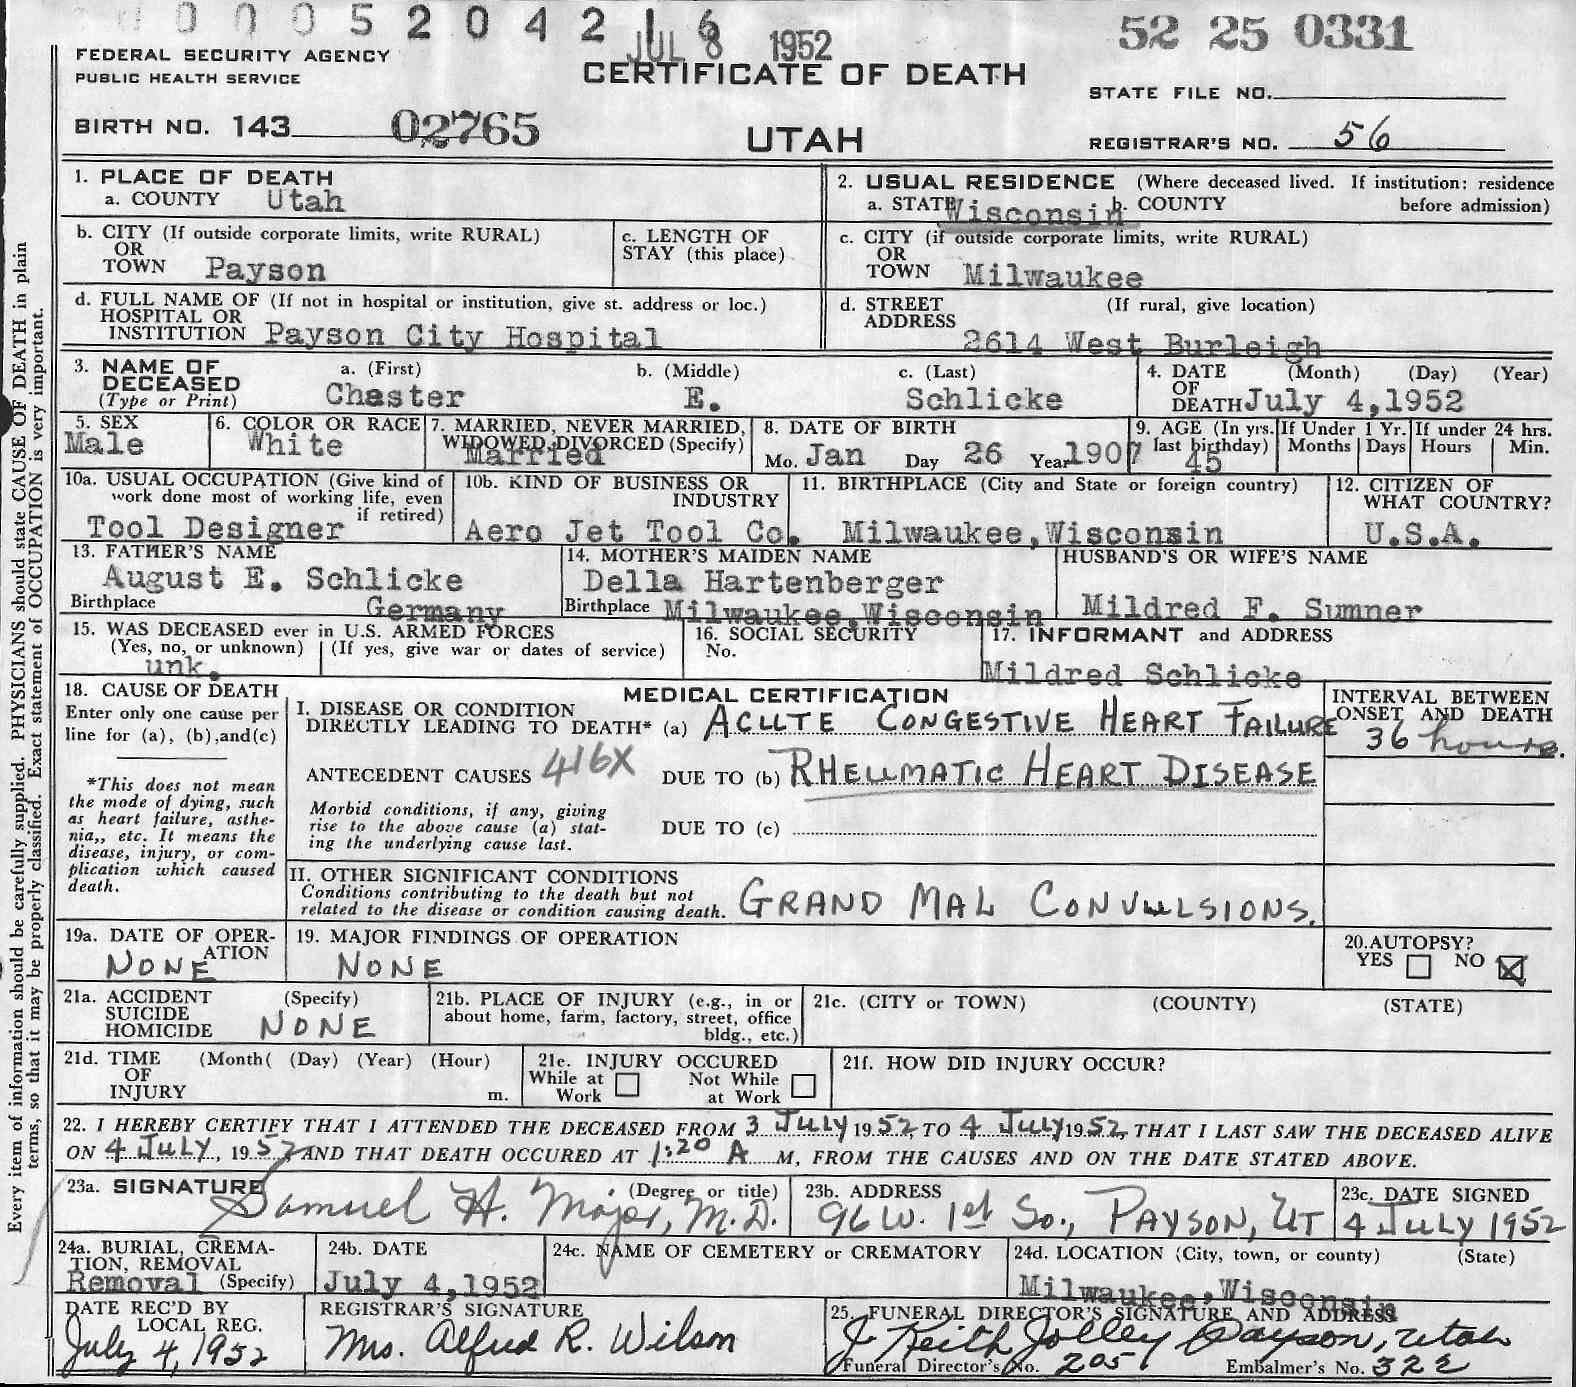 0 0 0 5 2 0 4 2 1 6
JUL 8 1952
52 25 0331
FEDERAL SECURITY AGENCY
PUBLIC HEALTH SERVICE
CERTIFICATE OF DEATH
STATE FILE NO.
BIRTH NO. 143 02765
UTAH
REGISTRAR'S NO. 56
1. PLACE OF DEATH
a. COUNTY Utah
2. USUAL RESIDENCE (Where deceased lived. If institution: residence before admission)
a. STATE Wisconsin b. COUNTY
b. CITY (If outside corporate limits, write RURAL)
OR
TOWN Payson
c. LENGTH OF
STAY (this place)
c. CITY (if outside corporate limits, write RURAL)
OR
TOWN Milwaukee
d. FULL NAME OF (If not in hospital or institution, give st. address or loc.)
HOSPITAL OR
INSTITUTION Payson City Hospital
d. STREET (If rural, give location)
ADDRESS
2614 West Burleigh
3. NAME OF
DECEASED
(Type or Print)
a. (First) b. (Middle) c. (Last)
Chester E. Schlicke
4. DATE (Month) (Day) (Year)
OF
DEATH July 4,1952
5. SEX
Male
6. COLOR OR RACE
White
7. MARRIED, NEVER MARRIED,
WIDOWED, DIVORCED (Specify)
Married
8. DATE OF BIRTH
Mo. Jan Day 26 Year 1907
9. AGE (In yrs. last birthday)
45
If Under 1 Yr.
Months Days
If under 24 hrs.
Hours Min.
10a. USUAL OCCUPATION (Give kind of
work done most of working life, even
if retired)
Tool Designer
10b. KIND OF BUSINESS OR
INDUSTRY
Aero Jet Tool Co.
11. BIRTHPLACE (City and State or foreign country)
Milwaukee,Wisconsin
12. CITIZEN OF
WHAT COUNTRY?
U.S.A.
13. FATHER'S NAME
August E. Schlicke
Birthplace Germany
14. MOTHER'S MAIDEN NAME
Della Hartenberger
Birthplace Milwaukee,Wisconsin
HUSBAND'S OR WIFE'S NAME
Mildred F. Sumner
15. WAS DECEASED ever in U.S. ARMED FORCES
(Yes, no, or unknown) (If yes, give war or dates of service)
unk.
16. SOCIAL SECURITY
No.
17. INFORMANT and ADDRESS
Mildred Schlicke
18. CAUSE OF DEATH
Enter only one cause per
line for (a), (b), and (c)
*This does not mean
the mode of dying, such
as heart failure, asthe-
nia,, etc. It means the
disease, injury, or com-
plication which caused
death.
MEDICAL CERTIFICATION
I. DISEASE OR CONDITION
DIRECTLY LEADING TO DEATH* (a) ACUTE CONGESTIVE HEART FAILURE
INTERVAL BETWEEN
ONSET AND DEATH
36 hours.
ANTECEDENT CAUSES 416X DUE TO (b) RHEUMATIC HEART DISEASE
Morbid conditions, if any, giving
rise to the above cause (a) stat-
ing the underlying cause last.
DUE TO (c)
II. OTHER SIGNIFICANT CONDITIONS
Conditions contributing to the death but not
related to the disease or condition causing death.
GRAND MAL CONVULSIONS.
19a. DATE OF OPER-
ATION
NONE
19. MAJOR FINDINGS OF OPERATION
NONE
20.AUTOPSY?
YES NO
21a. ACCIDENT (Specify)
SUICIDE
HOMICIDE NONE
21b. PLACE OF INJURY (e.g., in or
about home, farm, factory, street, office
bldg., etc.)
21c. (CITY or TOWN) (COUNTY) (STATE)
21d. TIME (Month( (Day) (Year) (Hour)
OF
INJURY m.
21e. INJURY OCCURED
While at Work
Not While at Work
21f. HOW DID INJURY OCCUR?
22. I HEREBY CERTIFY THAT I ATTENDED THE DECEASED FROM 3 JULY 1952, TO 4 JULY 1952, THAT I LAST SAW THE DECEASED ALIVE
ON 4 JULY, 1952 AND THAT DEATH OCCURED AT 1:20 A M, FROM THE CAUSES AND ON THE DATE STATED ABOVE.
23a. SIGNATURE (Degree or title)
Samuel H. Major, M.D.
23b. ADDRESS
96 W. 1st So., PAYSON, UT
23c. DATE SIGNED
4 JULY 1952
24a. BURIAL, CREMA-
TION, REMOVAL
Removal (Specify)
24b. DATE
July 4,1952
24c. NAME OF CEMETERY or CREMATORY
24d. LOCATION (City, town, or county) (State)
Milwaukee,Wisconsin
DATE REC'D BY
LOCAL REG.
July 4, 1952
REGISTRAR'S SIGNATURE
Mrs. Alfred R. Wilson
25. FUNERAL DIRECTOR'S SIGNATURE AND ADDRESS
J Keith Jolley Payson, Utah
Funeral Director's No. 205 Embalmer's No. 322
Every item of information should be carefully supplied. PHYSICIANS should state CAUSE OF DEATH in plain
terms, so that it may be properly classified. Exact statement of OCCUPATION is very important.